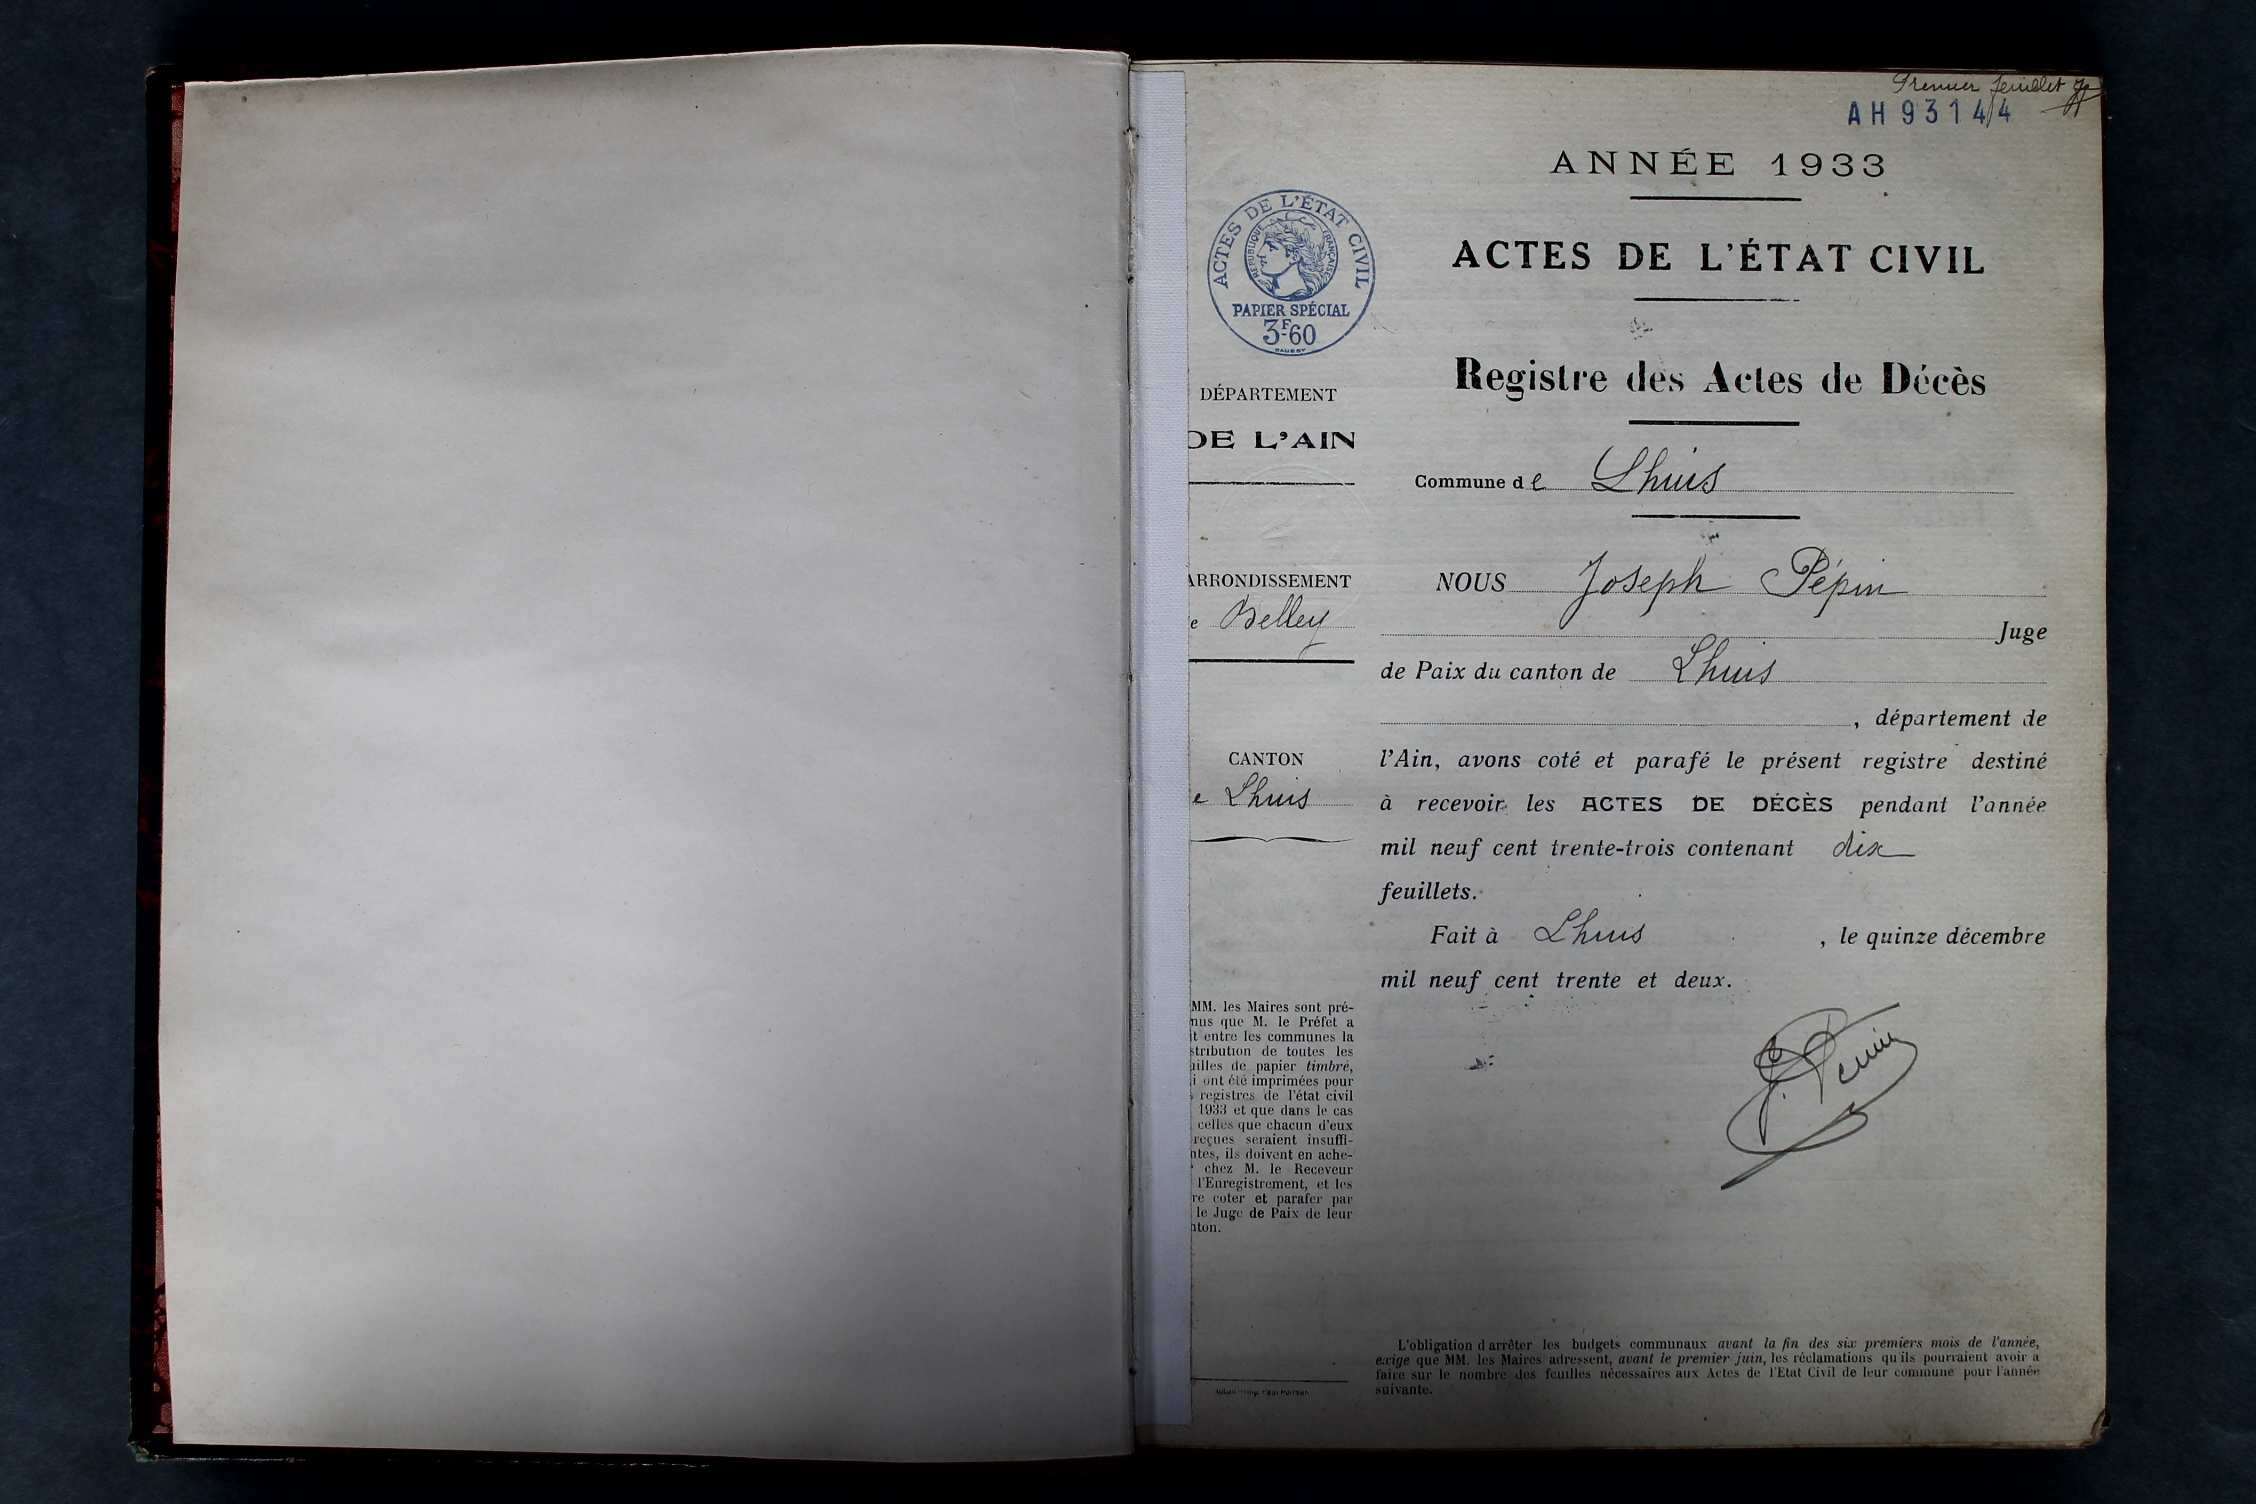 Premier feuillet
AH 93144
ANNÉE 1933
ACTES DE L'ÉTAT CIVIL
RÉPUBLIQUE FRANÇAISE
PAPIER SPÉCIAL
3F60
DÉPARTEMENT
DE L'AIN
ARRONDISSEMENT
e Belley
CANTON
e Lhuis
MM. les Maires sont pré-
nus que M. le Préfet a
it entre les communes la
stribution de toutes les
uilles de papier timbré,
i ont été imprimées pour
s registres de l'état civil
1933 et que dans le cas
celles que chacun d'eux
reçues seraient insuffi-
ntes, ils doivent en ache-
r chez M. le Receveur
l'Enregistrement, et les
re coter et parafer par
le Juge de Paix de leur
nton.
ACTES DE L'ÉTAT CIVIL
Registre des Actes de Décès
Commune de Lhuis
NOUS Joseph Pépin
Juge
de Paix du canton de Lhuis
, département de
l'Ain, avons coté et parafé le présent registre destiné
à recevoir les ACTES DE DÉCÈS pendant l'année
mil neuf cent trente-trois contenant dix
feuillets.
Fait à Lhuis , le quinze décembre
mil neuf cent trente et deux.
J. Pépin
L'obligation d'arrêter les budgets communaux avant la fin des six premiers mois de l'année,
exige que MM. les Maires adressent, avant le premier juin, les réclamations qu'ils pourraient avoir à
faire sur le nombre des feuilles nécessaires aux Actes de l'Etat Civil de leur commune pour l'année
suivante.